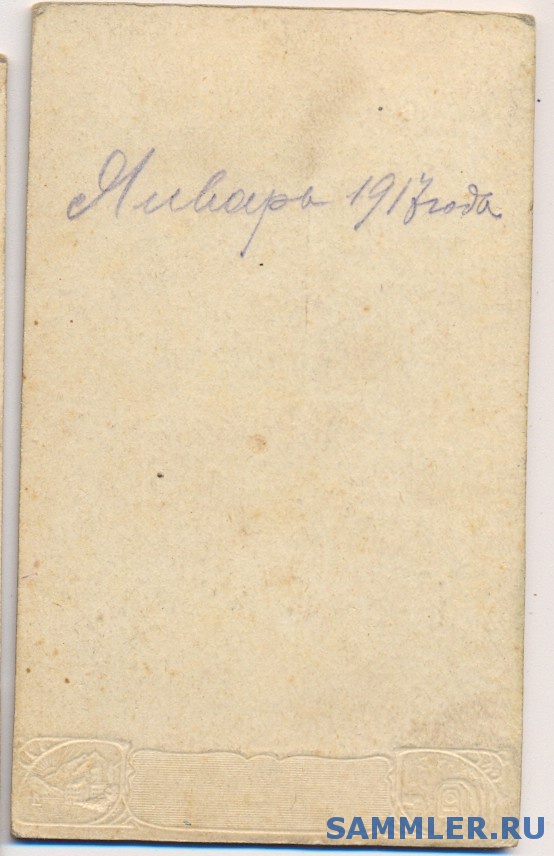 Январь 1917 года
SAMMLER.RU